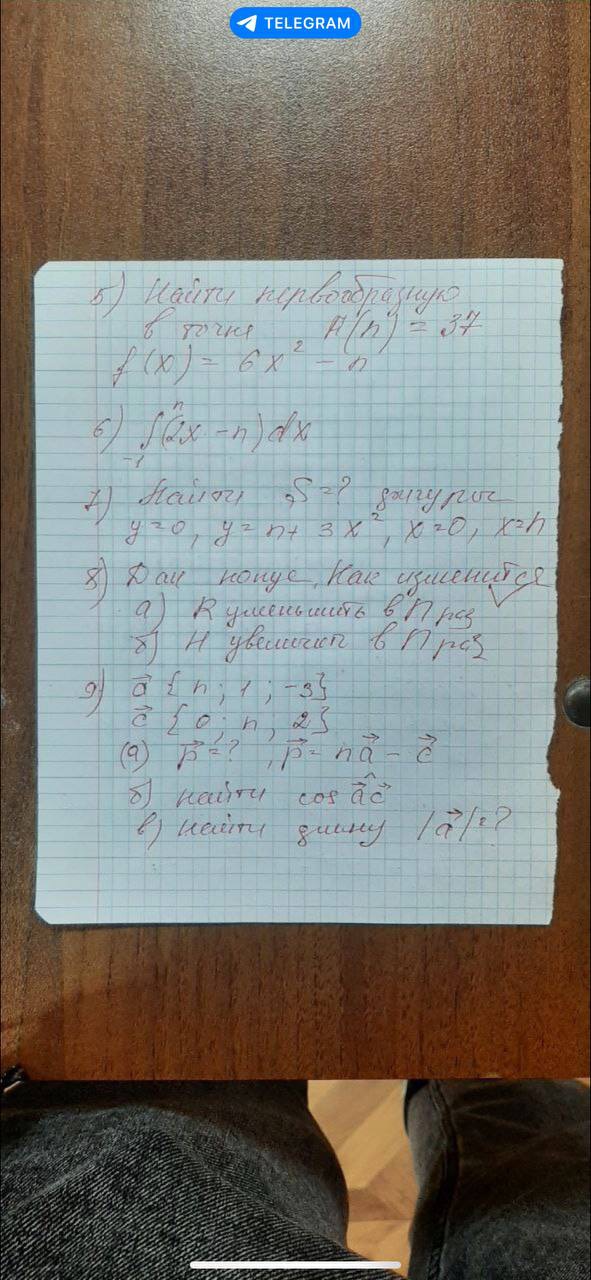 TELEGRAM
5) Найти первообразную
в точке A(n) = 37
f(x) = 6x² - n
6) ∫₋₁ⁿ(2x - n)dx
7) Найти S=? фигуры
y=0, y=n+3x², x=0, x=n
8) Дан конус. Как изменится V
а) R уменьшить в n раз
б) H увеличит в n раз
9) a⃗ {n; 1; -3}
c⃗ {0; n; 2}
(а) p⃗=?, p⃗= na⃗ - c⃗
б) найти cos a⃗^c⃗
в) найти длину |a⃗|=?